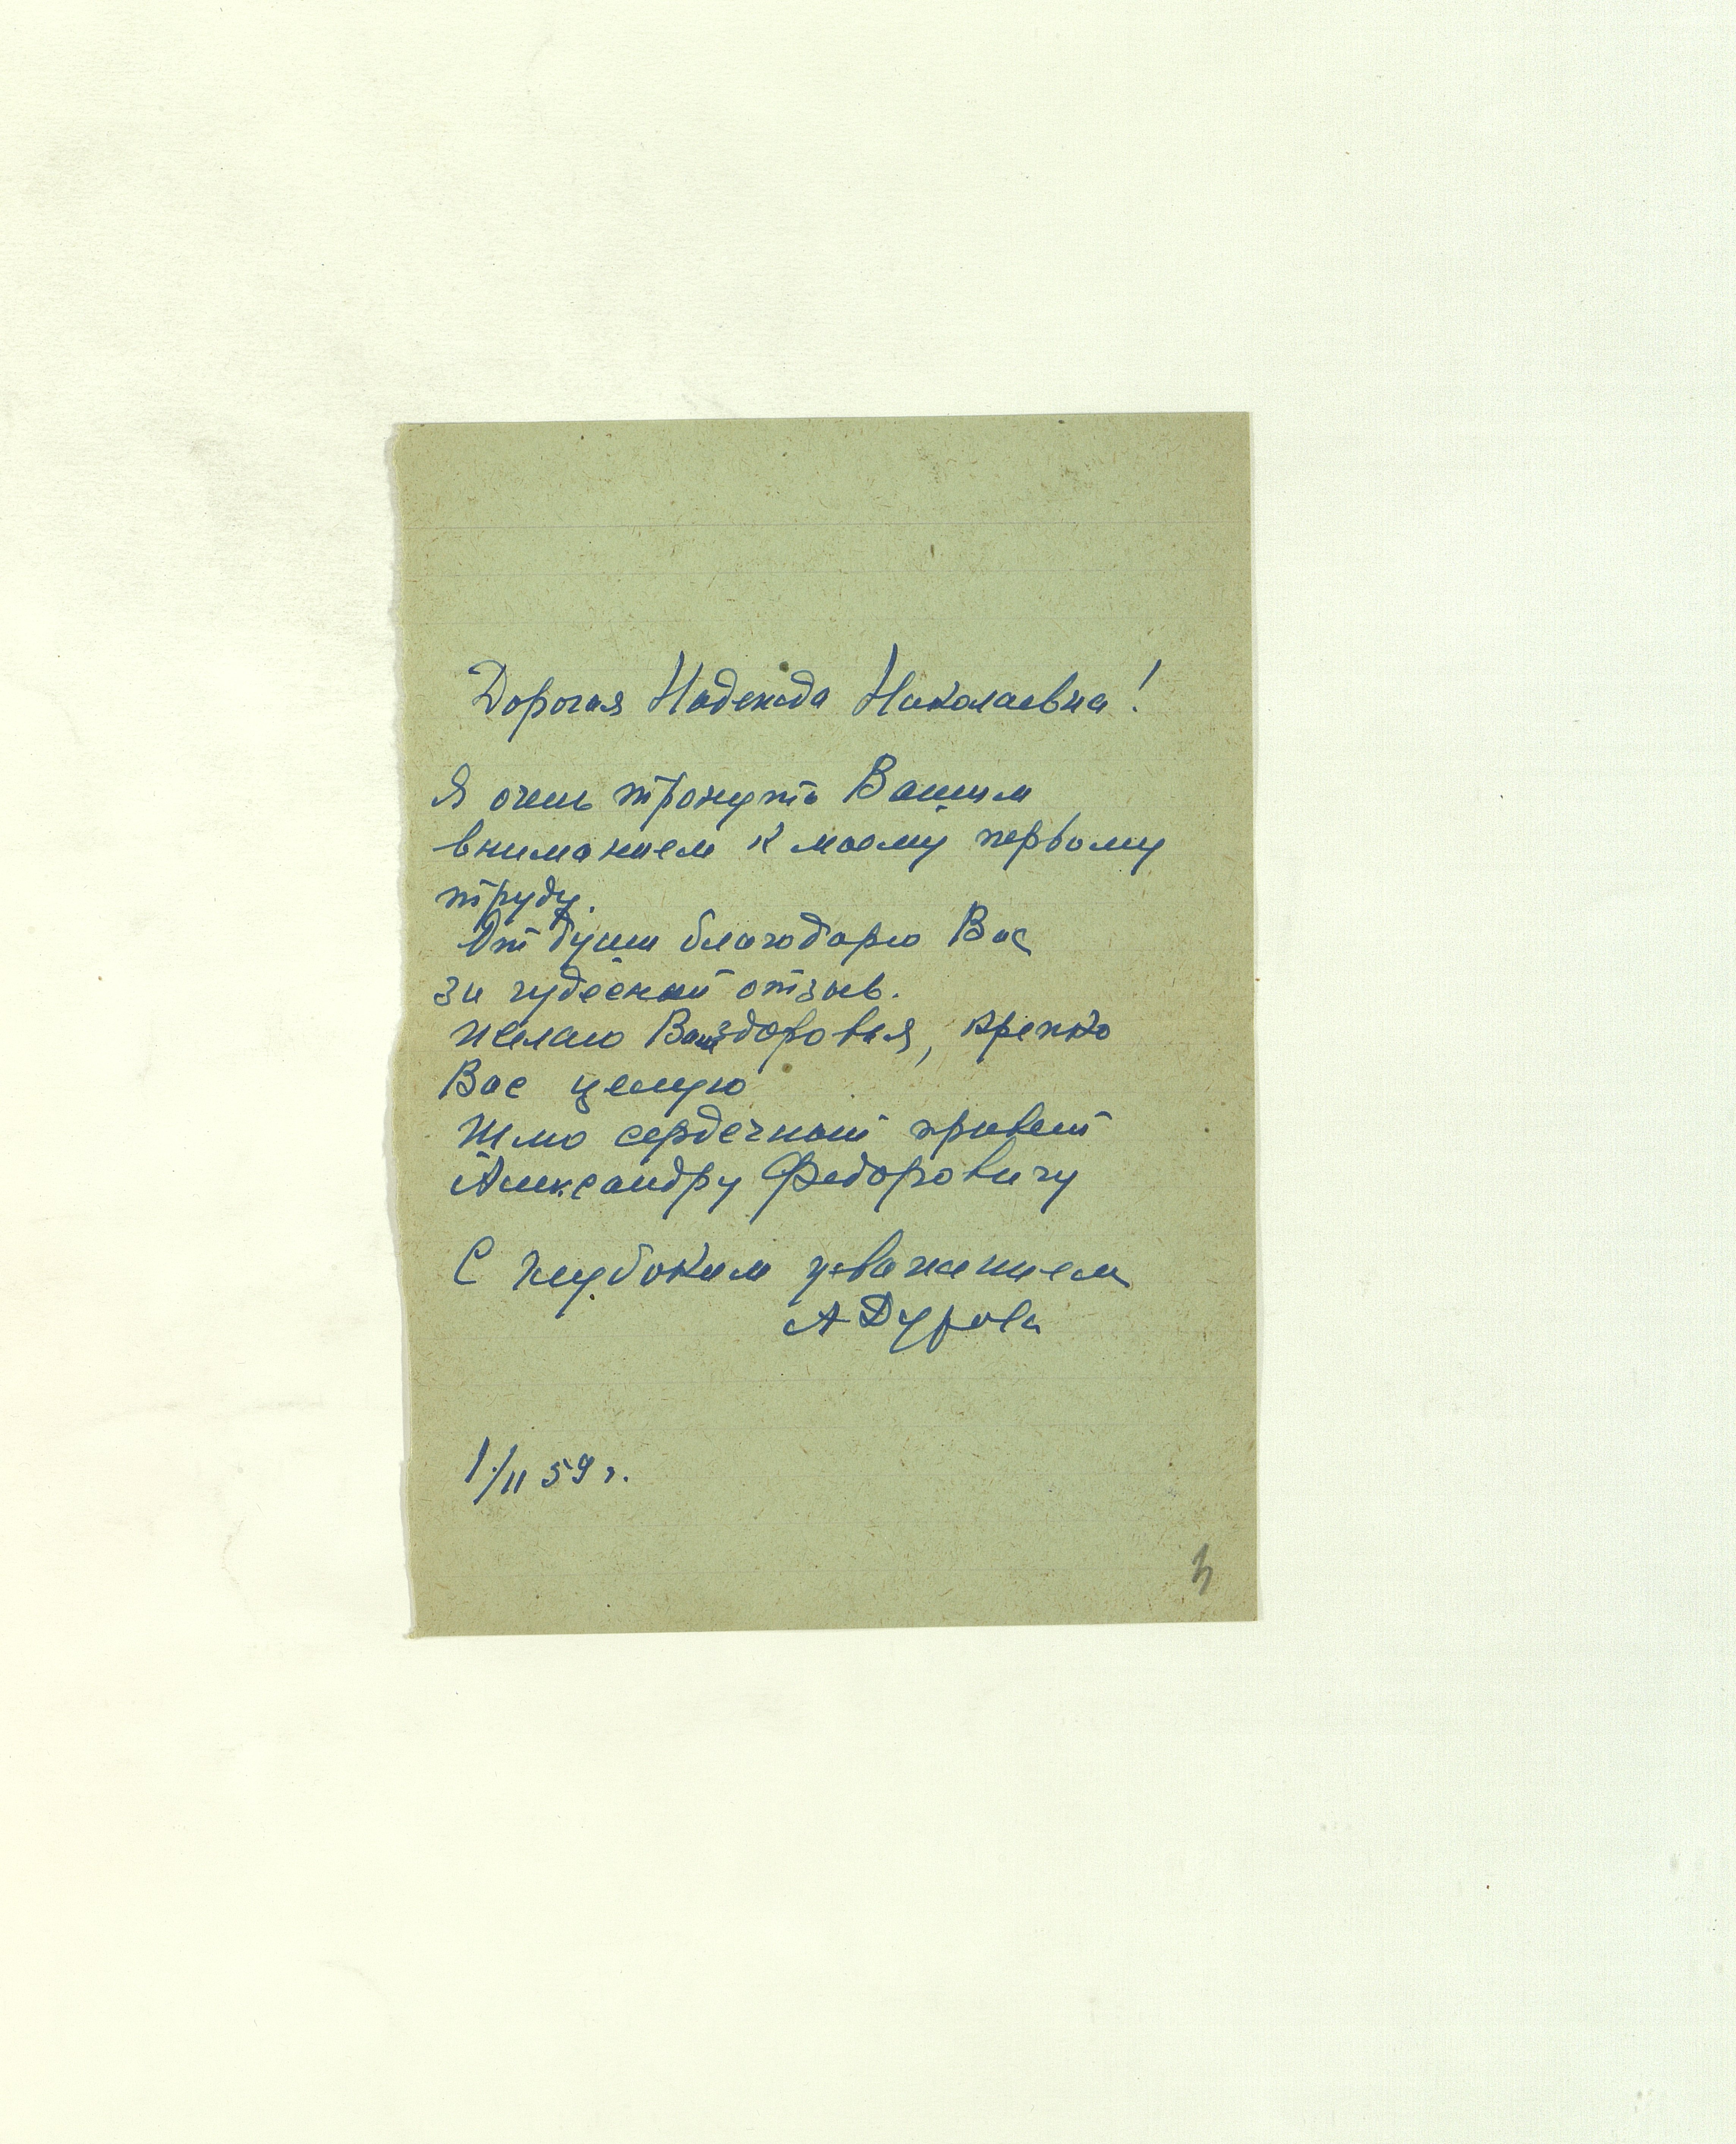 Дорогая Надежда Николаевна!
Я очень тронута Вашим
вниманием к моему первому
труду.
От души благодарю Вас
за чудесный отзыв.
Желаю Вам здоровья, крепко
Вас целую
Шлю сердечный привет
Александру Федоровичу
С глубоким уважением
А Дурова
1/II 59 г.